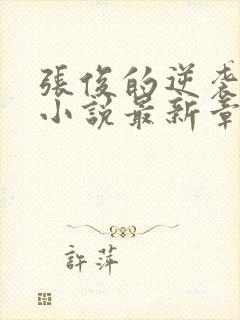 張俊的逆袭
小說最新章
許萍